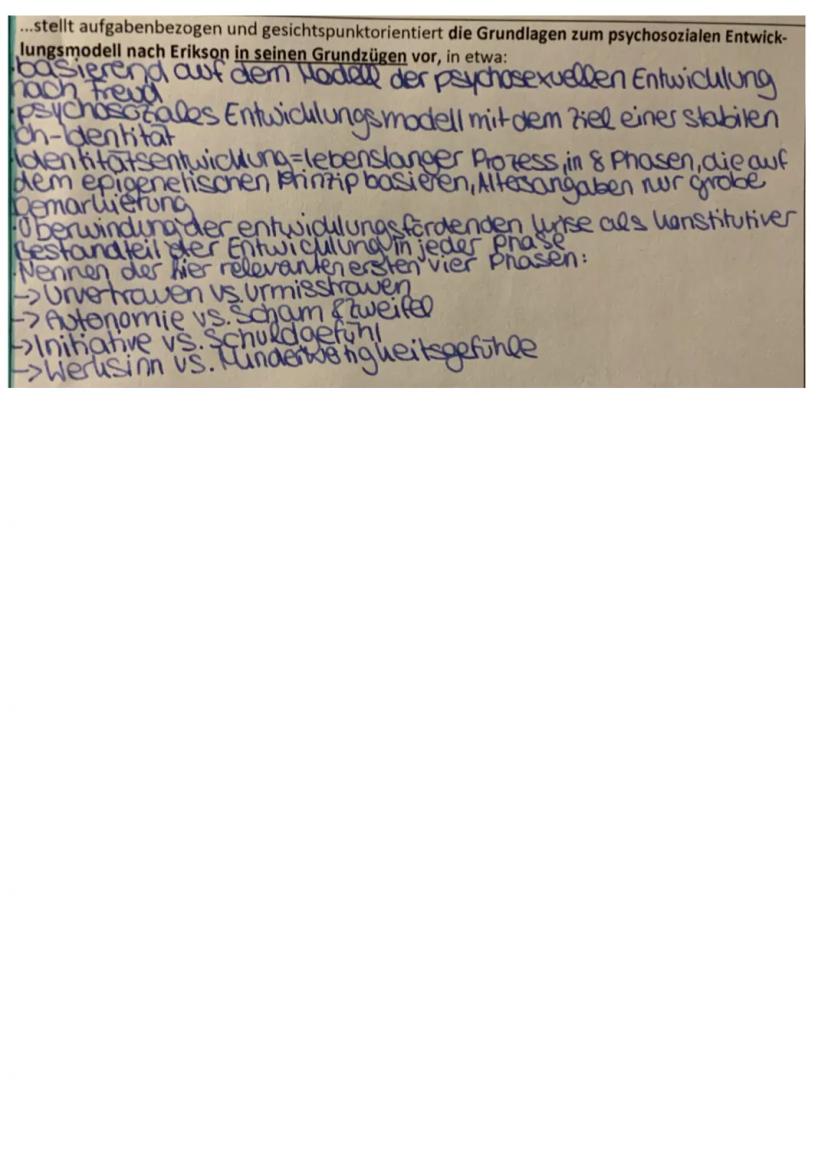 ...stellt aufgabenbezogen und gesichtspunktorientiert die Grundlagen zum psychosozialen Entwick-
lungsmodell nach Erikson in seinen Grundzügen vor, in etwa:
basierend auf dem Modell der psychosexuellen Entwicklung
nach Freud
psychosoziales Entwicklungsmodell mit dem Ziel einer stabilen
Ich-Identität
Identitätsentwicklung=lebenslanger Prozess, in 8 Phasen, die auf
dem epigenetischen Prinzip basieren, Altersangaben nur grobe
Demarkierung
Überwindung der entwicklungsfördenden Krise als konstitutiver
Bestandteil der Entwicklung in jeder Phase
Nennen der hier relevanten ersten vier Phasen:
-> Urvertrauen vs. Urmisstrauen
-> Autonomie vs. Scham & Zweifel
-> Initiative vs. Schuldgefühl
-> Werksinn vs. Minderwertigkeitsgefühle